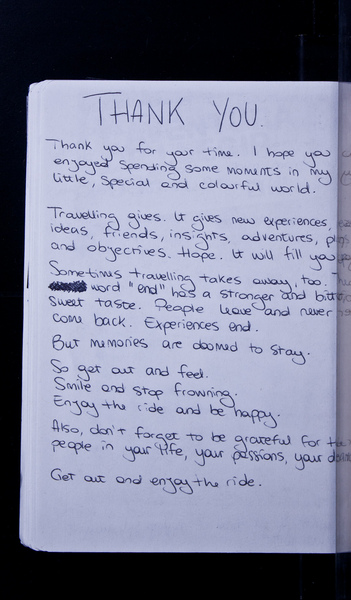 THANK YOU.
Thank you for your time. I hope you
enjoyed spending some moments in my
little, special and colourful world.
Travelling gives. It gives new experiences,
ideas, friends, insights, adventures,
and objectives. Hope. It will fill you
Sometimes travelling takes away, too.
word "end" has a stronger and
sweet taste. People leave and never
come back. Experiences end.
But memories are doomed to stay.
So get out and feel.
Smile and stop frowning.
Enjoy the ride and be happy.
Also, don't forget to be grateful for the
people in your life, your passions, your
Get out and enjoy the ride.